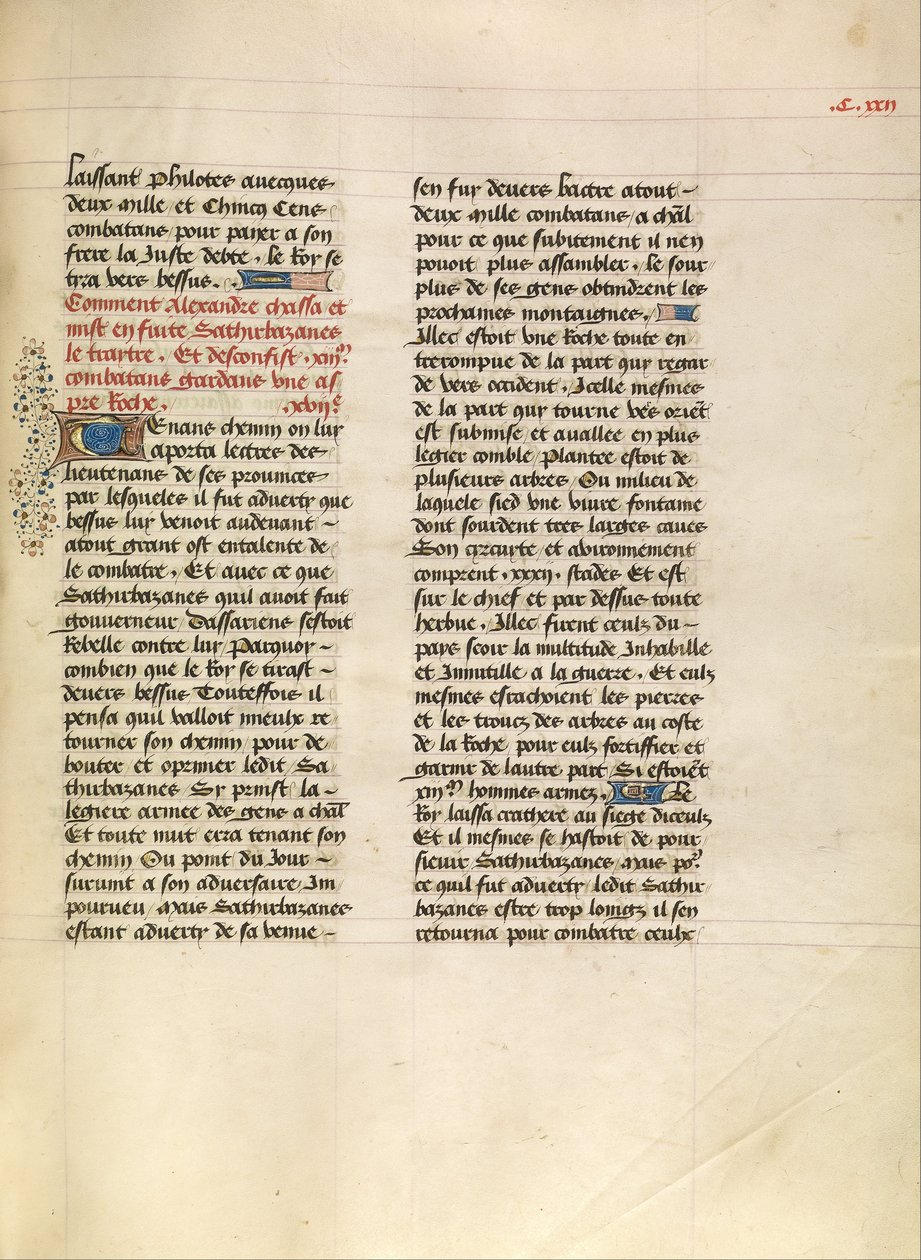 .C.xxij
laissant philotes auecques
deux mille et Chincq Cens
combatans pour payer a son
frere la Juste debte . le Roy se
tyra vers bessus . .
Comment Alexandre chassa et
mist en fuite Sathirbazanes
le traytre . Et desconfist .xiijm.
combatans gardans vne as
pre Roche . .xvije
Enans chemin on luy
aporta lettres des
lieutenans de ses prouinces
par lesqueles il fut aduerty que
bessus luy venoit audeuant ~
atout grant ost entalente de
le combatre . Et auec ce que
Sathirbazanes quil auoit fait
gouuerneur Dassariens sestoit
Rebelle contre luy Parquoy ~
combien que le Roy se tirast ~
deuers bessus Touteffois il
pensa quil valloit mieulx re
tourner son chemin pour de
bouter et oprimer ledit Sa
thirbazanes Sy prinst la ~
legiere armee des gens a chãl
Et toute nuit erra tenant son
chemin Ou point du Jour ~
suruint a son aduersaire Im
pourueu / Mais Sathirbazanes
estant aduerty de sa venue ~
sen fuy deuers bactre atout ~
deux mille combatans / a chãl
pour ce que subitement il nen
pouoit plus assambler . le sour
plus de ses gens obtindrent les
prochaines montaignes .
Illec estoit vne Roche toute en
trerompue de la part quy regar
de vers occident . Icelle mesmes
de la part quy tourne vers oriẽt
est submise et auallee en plus
legier comble / Plantee estoit de
plusieurs arbres / Ou milieu de
laquele sied vne viuve fontaine
dont sourdent tres larges eaues
Son circuyte et avironnement
comprent .xxxij. stades Et est
sur le chief et par dessus toute
herbue . Illec firent ceulz du ~
pays seoir la multitude Inhabille
et Inmutille a la guerre . Et eulz
mesmes esrachoient les pierres
et les troucz des arbres au coste
de la Roche pour eulz fortiffier et
garnir de lautre part Si estoiẽt
xiijm hommes armez . Le
Roy laissa crathere au siege diceulz
Et il mesmes se hastoit de pour
sieuir Sathirbazanes Mais por
ce quil fut aduerty ledit Sathir
bazanes estre trop loingz il sen
retourna pour combatre ceulx